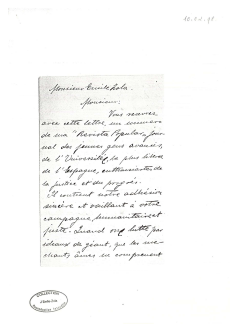 10.IV.98
Monsieur Emile Zola
Monsieur:
Vous recevrez
avec cette lettre un numéro
de ma "Revista Popular", jour-
nal des jeunes gens avancés,
de l'Université, la plus libre
de l'Espagne, enthousiastes de
la justice et du progrès.
Il contient notre adhésion
sincère et vaillant à votre
campagne, humanitaire et
juste. Quand on lutte par
idéaux de géant, que les me-
chants âmes ne comprennent
COLLECTION